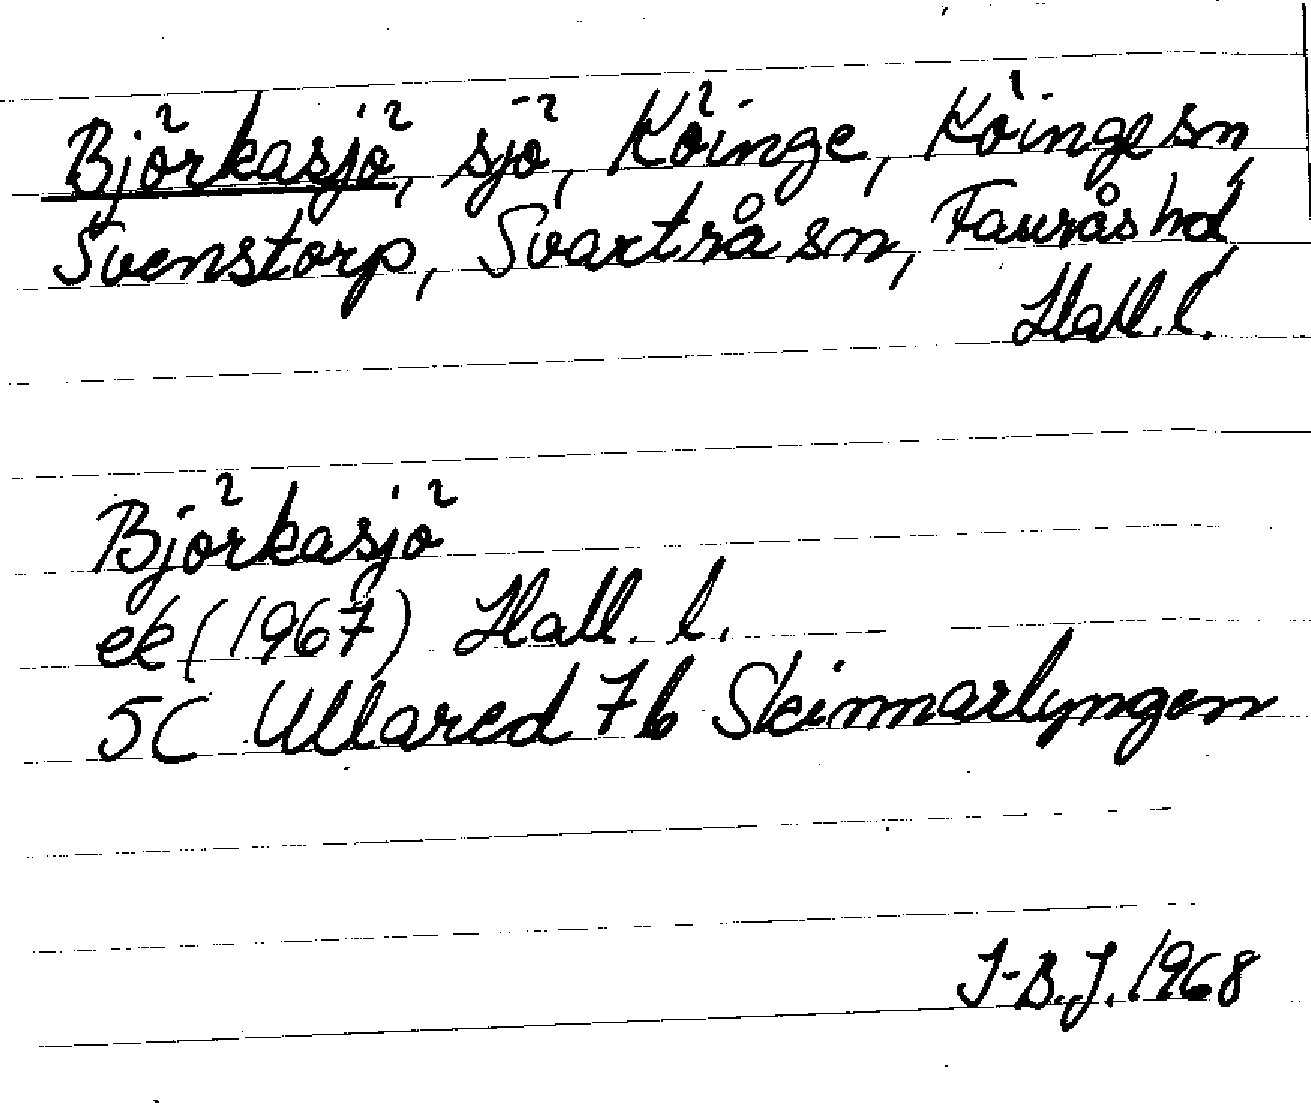 Björkasjö, sjö, Köinge, Köinge sn,
Svenstorp, Svartrå sn, Faurås hd,
Hall. l.
Björkasjö
ek (1967) Hall. l.
5C Ullared 7b Skinnarlyngen
J-B.J. 1968